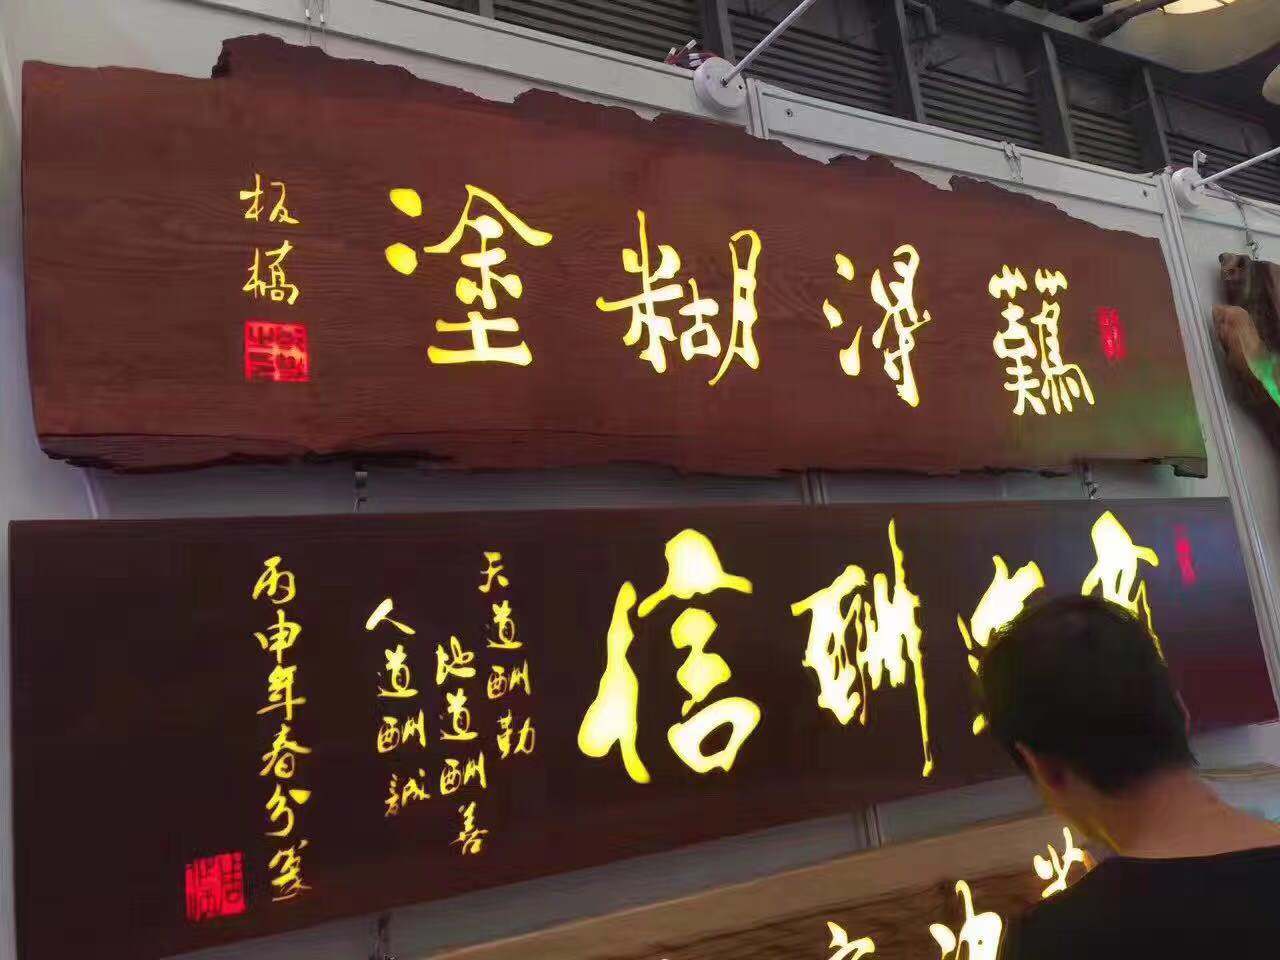 難得糊塗
板橋
酬信
天道酬勤
地道酬善
人道酬誠
丙申年春分